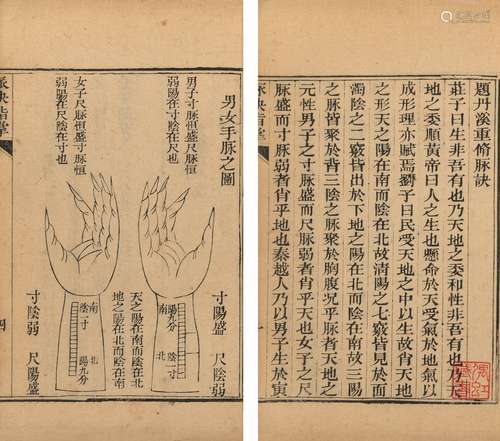 題丹溪重脩脉訣
莊子曰生非吾有也乃天地之委和性非吾有也乃天
地之委順黃帝曰人之生也懸命於天受氣於地氣以
成形理亦賦焉劉子曰民受天地之中以生故肖天地
之形天之陽在南而陰在北故清陽之七竅皆見於面
濁陰之二竅皆出於下地之陽在北而陰在南故三陽
之脉皆聚於背三陰之脉皆聚於胸腹况乎脉天地之
元性男子之寸脉盛而尺脉弱者肖乎天也女子之尺
脉盛而寸脉弱者肖乎地也秦越人乃以男子生於寅
男女手脉之圖
男子寸脉恒盛尺脉恒
弱陽在寸陰在尺也
女子尺脉恒盛寸脉恒
弱陽在尺陰在寸也
寸陽盛 尺陰弱
南 北
陽九分 陰一寸
天之陽在南而陰在北
地之陽在北而陰在南
南 北
陰一寸 陽九分
寸陰弱 尺陽盛